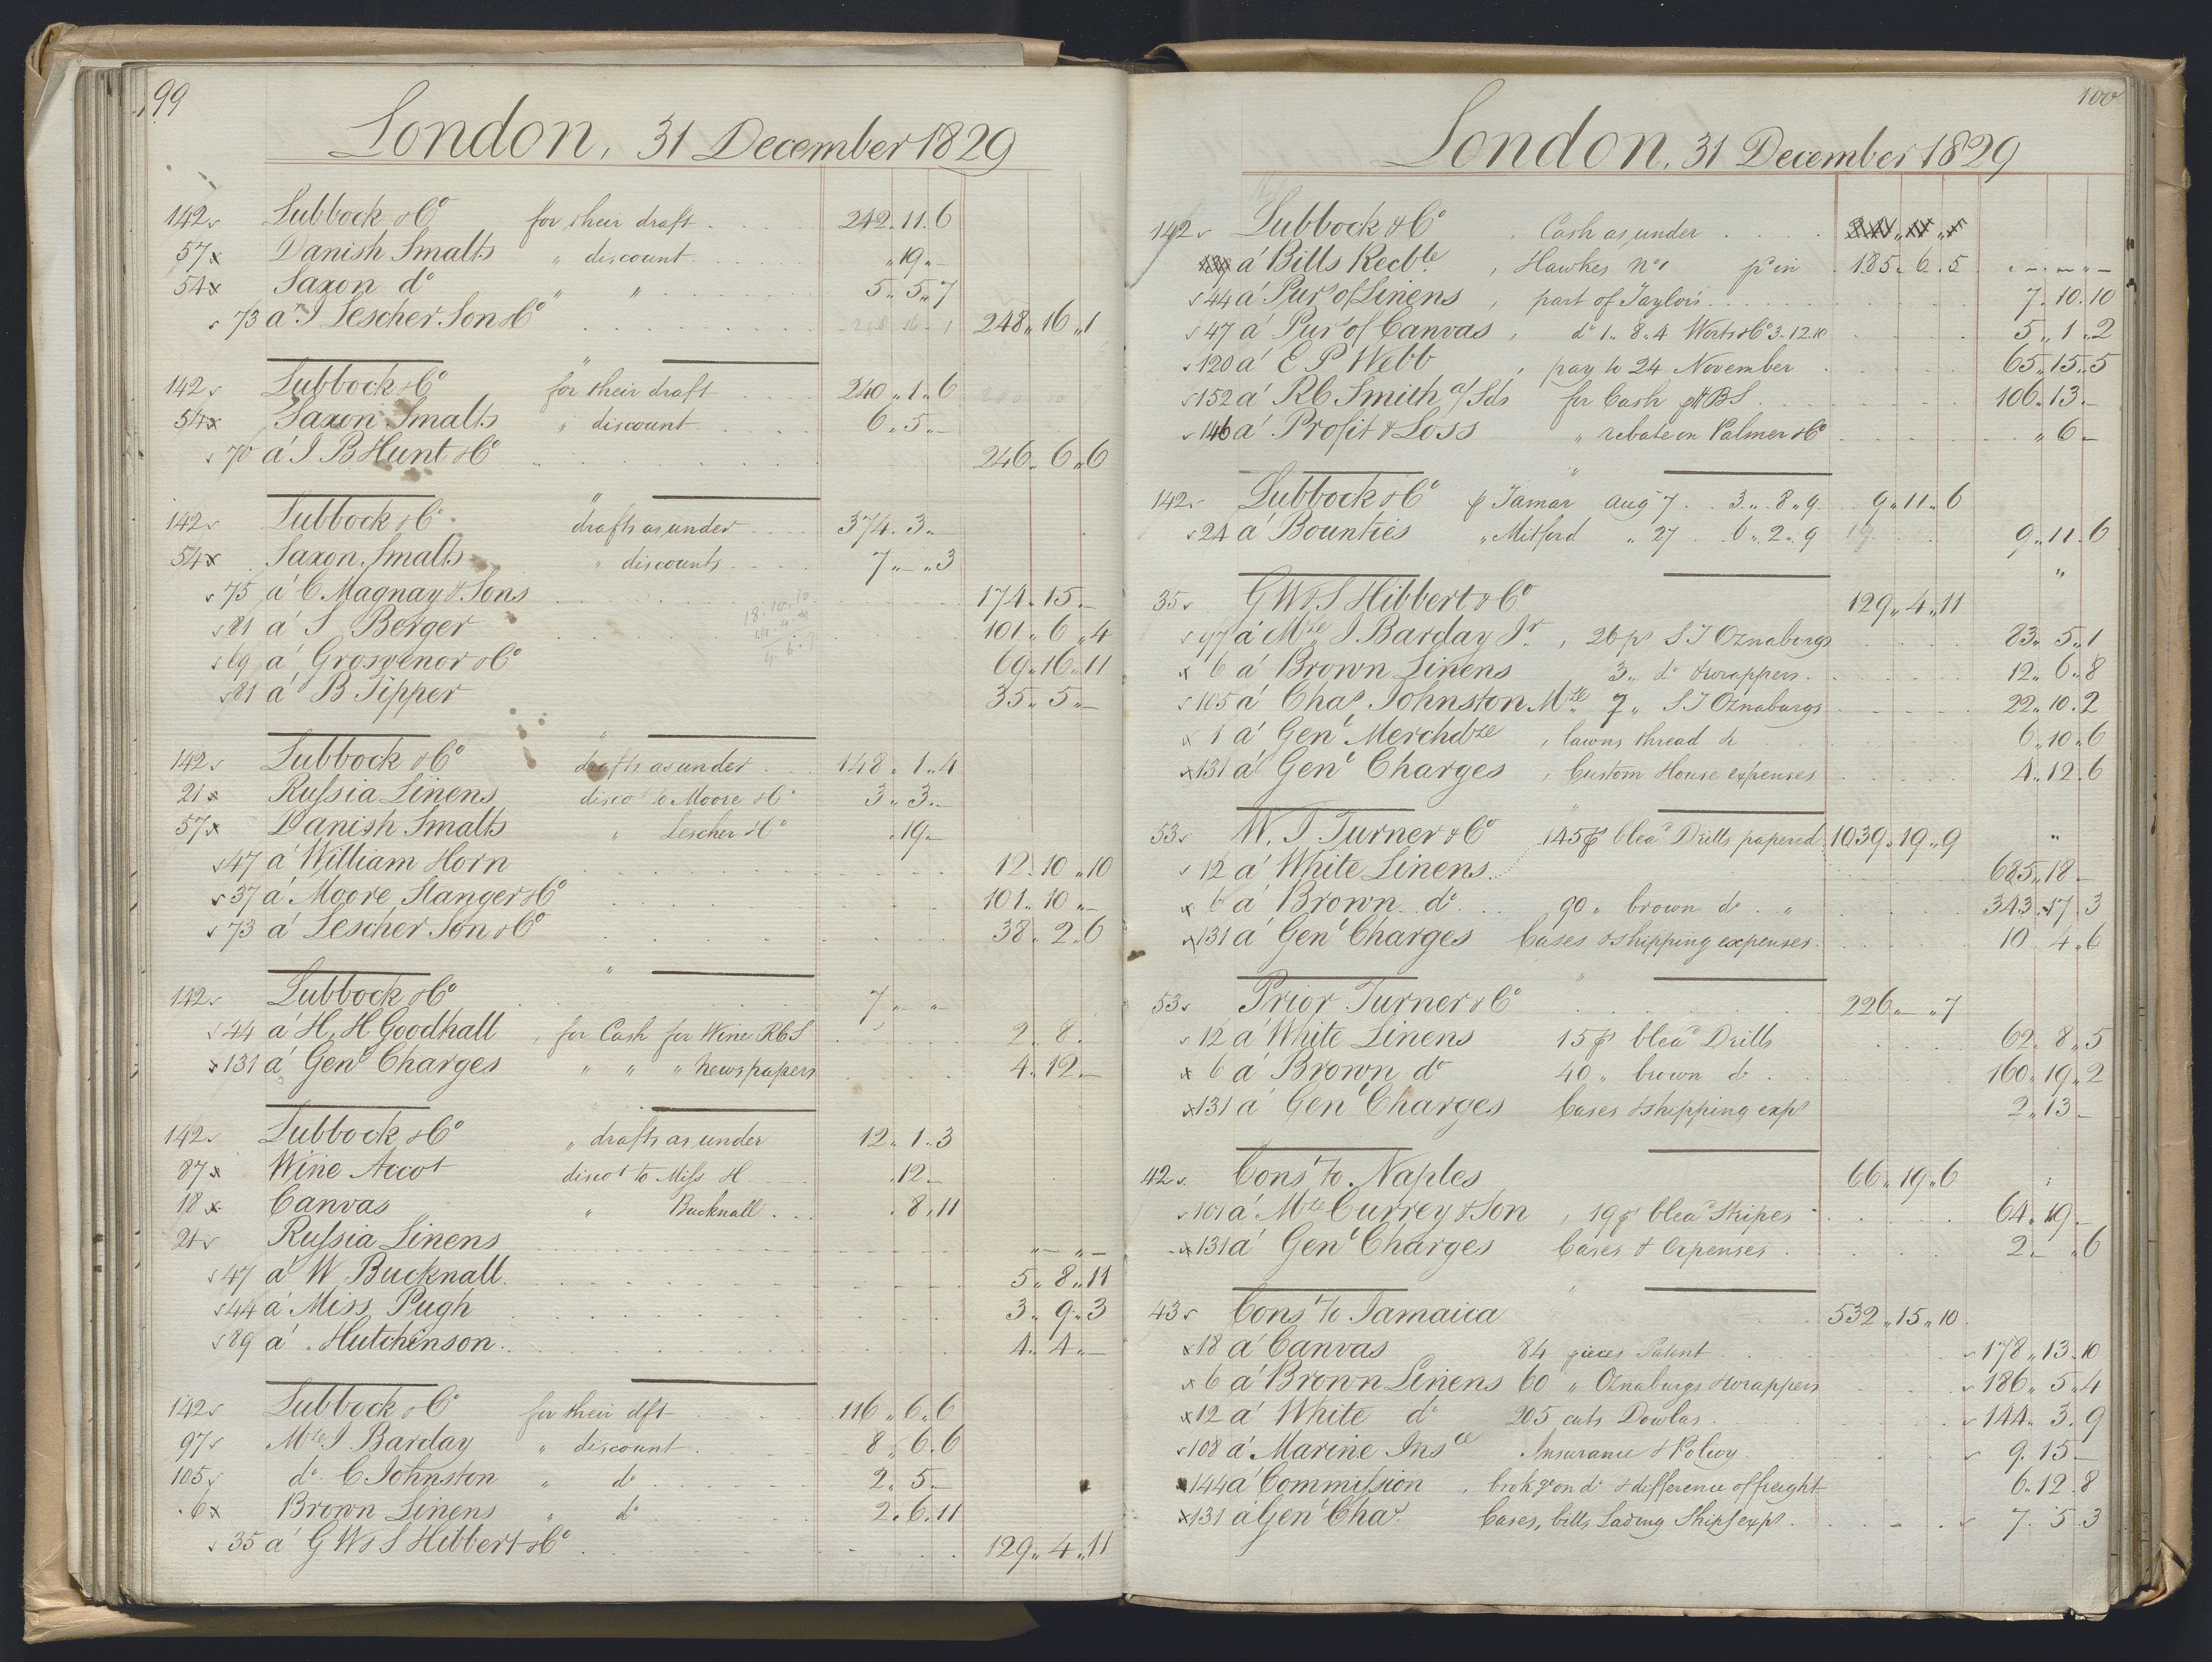 99
London, 31 December 1829
142 Lubbock & Co for their draft 242 " 11 " 6
57 x Danish Smalts " discount " 19 " –
54 x Saxon do " " 5 " 5 " 7
73 a J Lescher Son & Co 248 " 16 " 1
"
142 Lubbock & Co for their draft 240 " 1 " 6
54 x Saxon Smalts " discount 6 " 5 " –
70 a' J B Hunt & Co 246 " 6 " 6
"
142 Lubbock & Co drafts as under 374 " 3 " –
54 x Saxon Smalts " discounts 7 " – " 3
75 a' C Magnay & Sons 174 " 15 " –
81 a' S Berger 101 " 6 " 4
69 a' Grosvenor & Co 69 " 16 " 11
81 a' B Tipper 35 " 5 " –
"
142 Lubbock & Co drafts as under 148 " 1 " 4
21 x Russia Linens disco to Moore & Co 3 " 3 " –
57 x Danish Smalts " Lescher & Co " 19 " –
47 a' William Horn 12 " 10 " 10
37 a' Moore Stanger & Co 101 " 10 " –
73 a' Lescher Son & Co 38 " 2 " 6
"
142 Lubbock & Co 7 " – " –
44 a' H, H Goodhall , for Cash for Wine RbS 2 " 8 "
x 131 a' Genl Charges " " " Newspapers 4 " 12 " –
142 Lubbock & Co " drafts as under 12 " 1 " 3
87 x Wine Accot discot to Miss H " 12 " –
18 x Canvas " Bucknall " 8 " 11
21 Russia Linens " – " –
47 a' W Bucknall 5 " 8 " 11
44 a' Miss Pugh 3 " 9 " 3
89 a' Hutchinson 4 " 4 " –
142 Lubbock & Co for their dft 116 " 6 " 6
97 Mdze J Barclay " discount 8 " 6 " 6
105 do C Johnston " do 2 " 5 " –
6 x Brown Linens " do 2 " 6 " 11
35 a' G W & S Hibbert & Co 129 " 4 " 11
100
London, 31 December 1829
142 Lubbock & Co Cash as under
a' Bills Recble , Hawkes No 1 185 " 6 " 5 " – " –
44 a' Purs of Linens , part of Taylors 7 " 10 " 10
47 a' Purs of Canvas , do 1 " 8 " 4 Worts & Co 3 " 12 " 10 5 " 1 " 2
120 a' E P Webb , pay to 24 November 65 " 15 " 5
152 a' Rb Smith a/ Sds for Cash pr BS 106 " 13 " –
146 a' Profit & Loss " rebate on Palmer & Co " 6 " –
"
142 Lubbock & Co p Tamar Aug 7 3 " 8 " 9 9 " 11 " 6
24 a' Bounties " Mitford " 27 6 " 2 " 9 9 " 11 " 6
35 G W & S Hibbert & Co 129 " 4 " 11 "
97 a' Mdze J Barclay Jr , 26 ps S J Oznaburgs 83 " 5 " 1
x 6 a' Brown Linens 3 " do & wrappers 12 " 6 " 8
105 a' Chas Johnston Mdze 7 " S J Oznaburgs 22 " 10 " 2
x 1 a' Genl Merchdze , lawns thread & 6 " 10 " 6
x 131 a' Genl Charges , Custom House expenses 4 " 12 " 6
"
53 W. T Turner & Co 145 ps blead Drills papered 1039 " 19 " 9 "
12 a' White Linens 685 " 18 –
x 6 a' Brown do 90 " brown do " 343 " 17 " 3
x 131 a' Genl Charges Cases & shipping expenses 10 " 4 " 6
"
53 Prior Turner & Co 226 " – " 7
12 a' White Linens 15 ps blead Drills 62 " 8 " 5
x 6 a' Brown do 40 " brown do 160 " 19 " 2
x 131 a' Genl Charges Cases & shipping exps 2 " 13 –
42 Const to Naples 66 " 19 " 6
101 a' Mdze Currey & Son , 19 ps blead Stripes 64 " 19 –
x 131 a' Genl Charges Cases & Expenses 2 " – " 6
"
43 Const to Jamaica 532 " 15 " 10
x 18 a' Canvas 84 pieces Patent 178 " 13 " 10
x 6 a' Brown Linens 60 " Oznaburgs & wrappers 186 " 5 " 4
x 12 a' White do 205 cuts Dowlas 144 " 3 " 9
108 a' Marine Insce Insurance & Policy 9 " 15 –
144 a' Commission , brokge on do & difference of freight 6 " 12 " 8
x 131 a' Genl Chas Cases, bills Lading Shipg exps 7 " 5 " 3